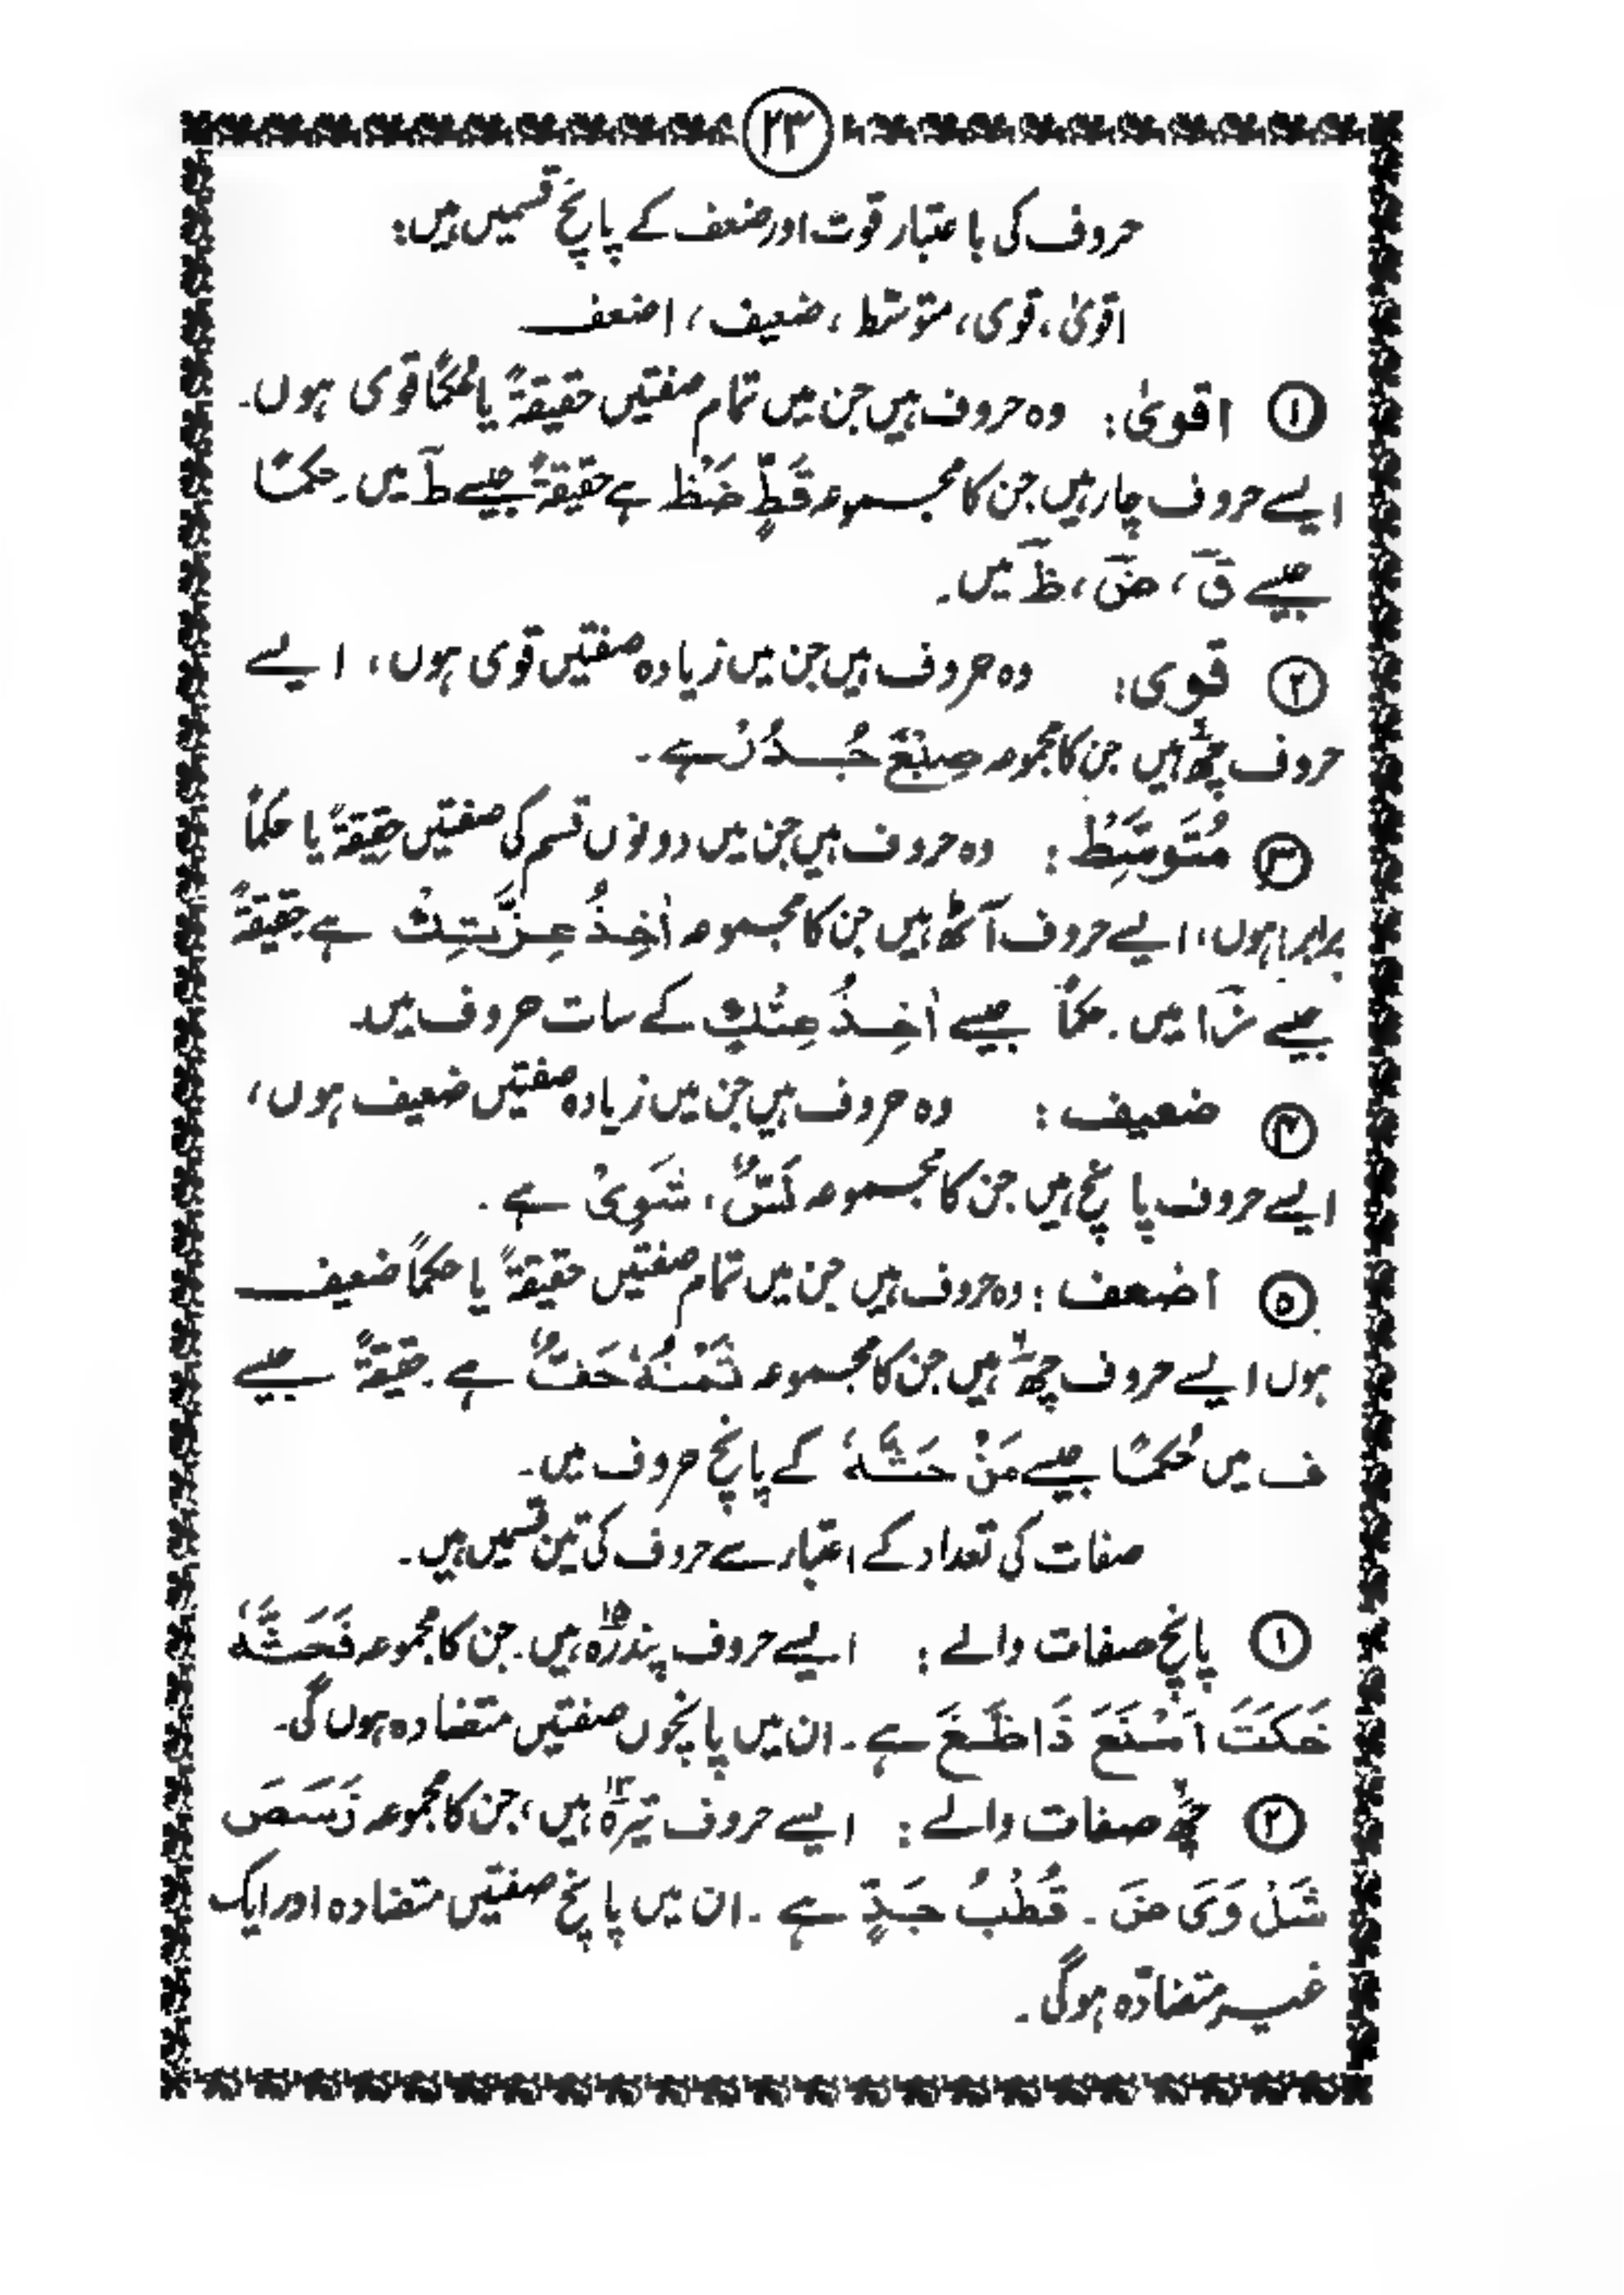 ۲۳
حروف کی با عتبار قوت اور ضعف کے پانچ قسمیں ہیں:
اقویٰ، قوی، متوسّط، ضعیف، اضعف
① اقویٰ: وہ حروف ہیں جن میں تمام صفتیں حقیقۃً یا حُکماً قوی ہوں۔
ایسے حروف چار ہیں جن کا مجموعہ قَطٍّ ضَظْ ہے حقیقۃً جیسے طَ میں۔ حکمًا
جیسے قَ، ضَ، ظَ میں۔
② قوی: وہ حروف ہیں جن میں زیادہ صفتیں قوی ہوں، ایسے
حروف چھ ہیں جن کا مجموعہ صِبْغَ جُدُرْ ہے۔
③ مُتَوسِّطْ: وہ حروف ہیں جن میں دونوں قسم کی صفتیں حقیقۃً یا حکماً
برابر ہوں، ایسے حروف آٹھ ہیں جن کا مجموعہ ہے حقیقۃً
جیسے میں۔ حکماً جیسے کے سات حروف میں
④ ضعیف: وہ حروف ہیں جن میں زیادہ صفتیں ضعیف ہوں،
ایسے حروف پانچ ہیں جن کا مجموعہ شَوِیْ ہے۔
⑤ اضعف: وہ حروف ہیں جن میں تمام صفتیں حقیقۃً یا حکماً ضعیف
ہوں ایسے حروف چھ ہیں جن کا مجموعہ ہے۔ حقیقۃً جیسے
ف میں حُکمًا جیسے مَنْ حَثَّهٗ کے پانچ حروف میں۔
صفات کی تعداد کے اعتبار سے حروف کی تین قسمیں ہیں۔
① پانچ صفات والے: ایسے حروف پندرہ ۱۵ ہیں۔ جن کا مجموعہ فَحَثَّهٗ
خَكَتَ اَمْنَعَ ذَا ظَغَ ہے۔ ان میں پانچوں صفتیں متضادہ ہوں گی۔
② چھ صفات والے: ایسے حروف تیرہ ۱۳ ہیں، جن کا مجموعہ زَسَصَ
شَلْ وَیَ ضَ۔ قُطْبُ جَدٍّ ہے۔ ان میں پانچ صفتیں متضادہ اور ایک
غیر متضادّہ ہوگی۔